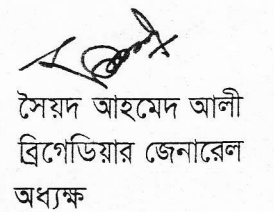 সৈয়দ আহমেদ আলী
ব্রিগেডিয়ার জেনারেল
অধ্যক্ষ